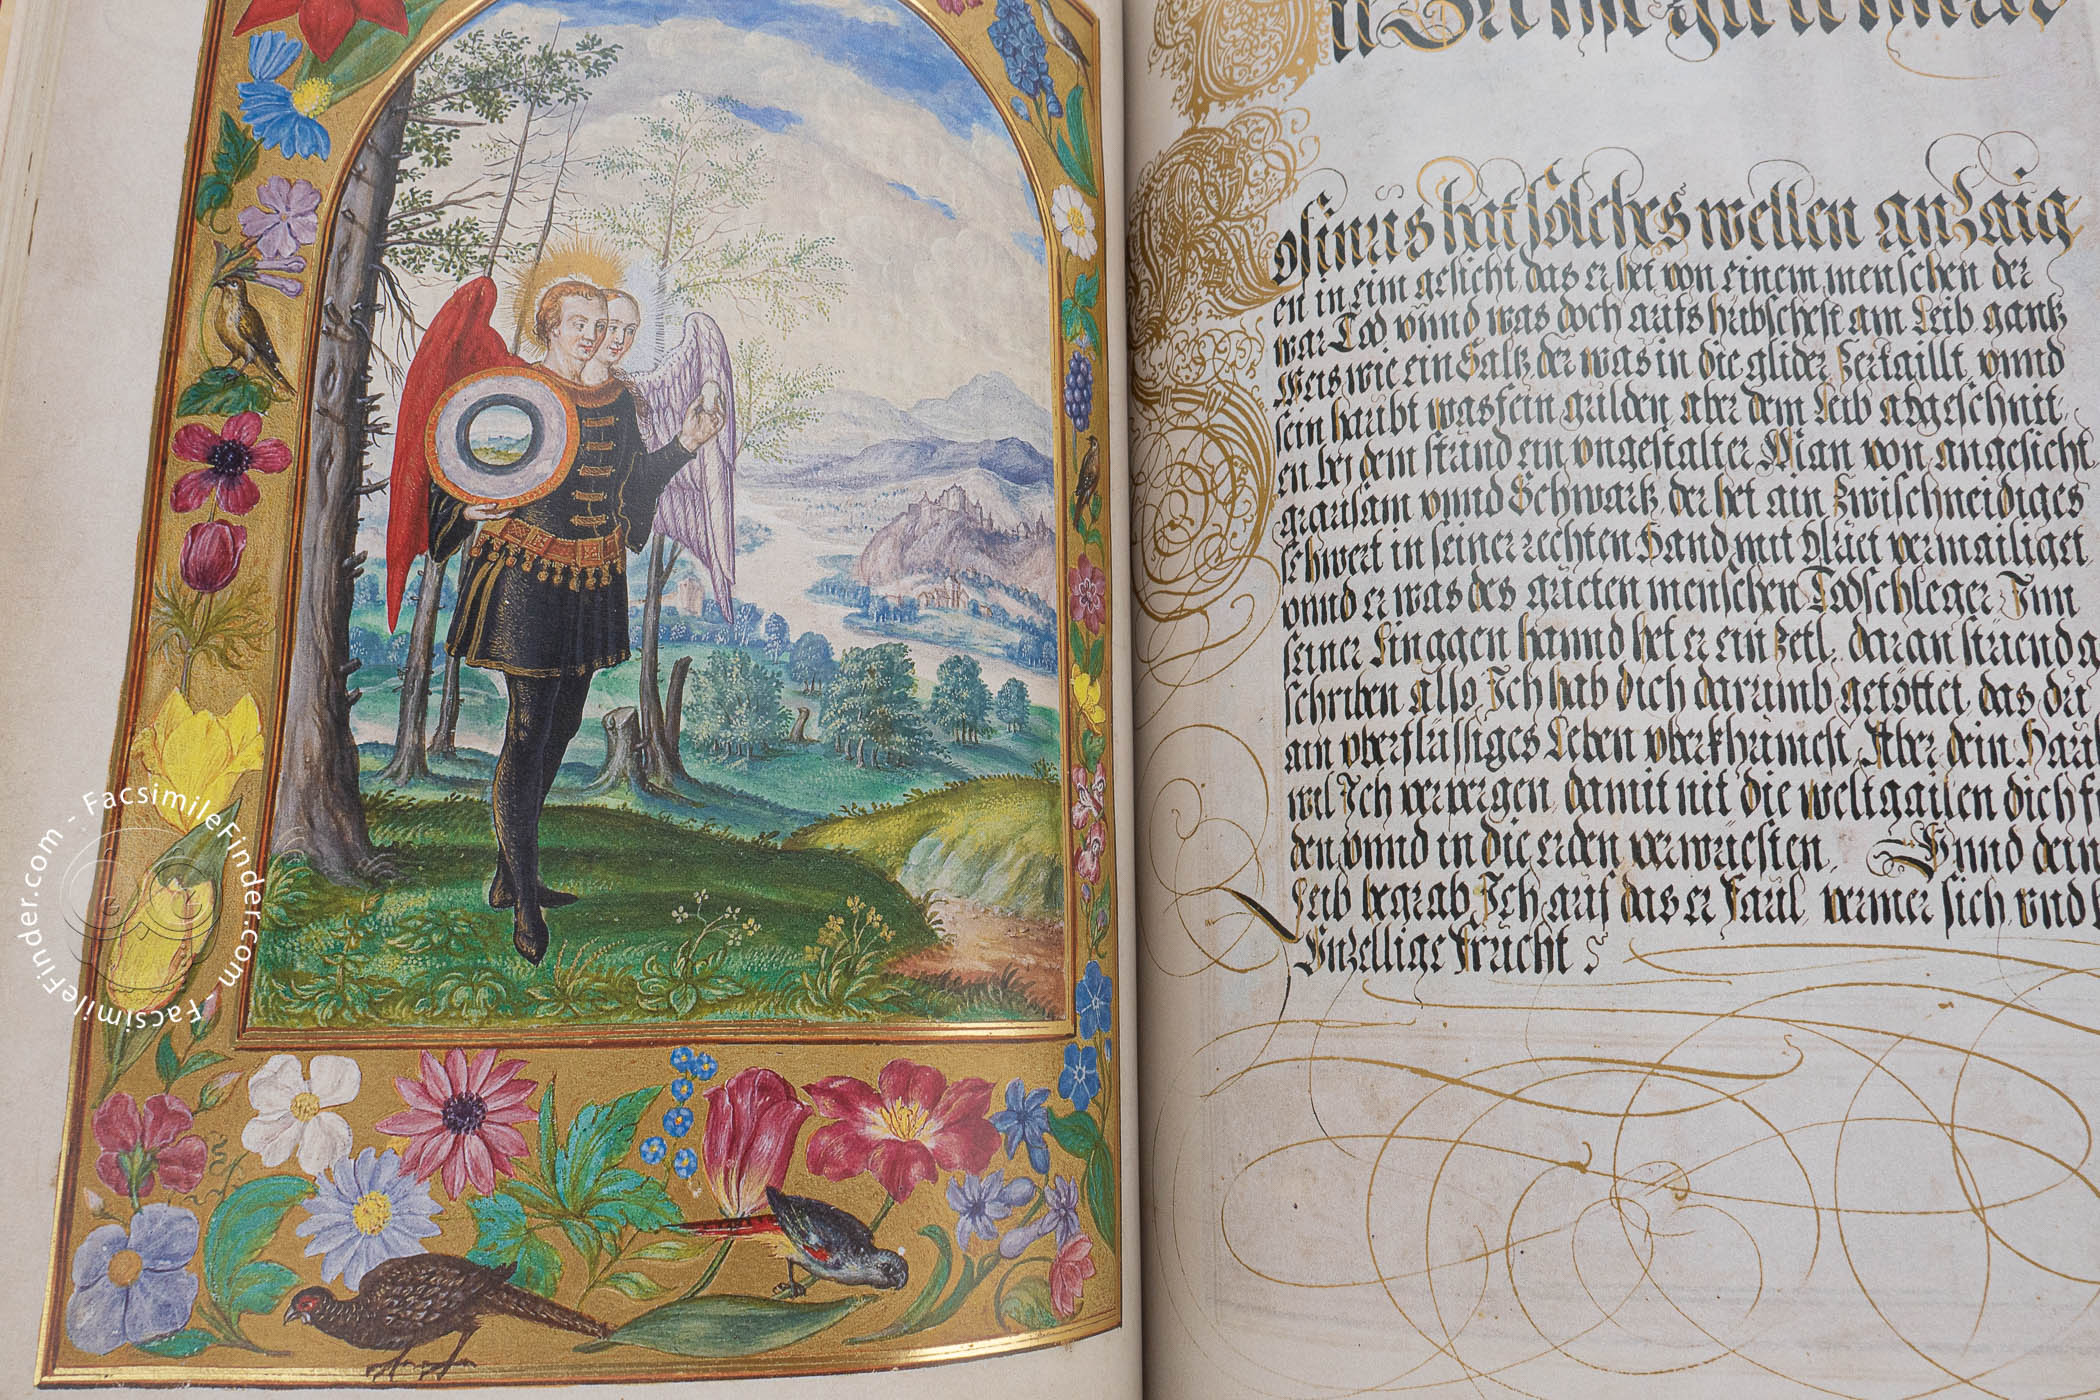 osinus hat solches wellen anzaig
en in eim gesicht das er het von einem menschen der
war Tod, vnnd was doch aufs hübschest am Leib gantz
Weis wie ein Saltz der was in die glider Zertaillt, vnnd
sein haubt was fein gulden, aber dem Leib abgeschnit
en bej dem stund ein vngestalter Man von angesicht
grausam vnnd Schwartz, der het ain zwischneidiges
schwert in seiner rechten Hand mit blüet vermailiget
vnnd er was des güeten menschen Todschleger, Jnn
seiner Linggen hannd het er ein zetl, daran stüend g
schriben also, Jch hab dich darumb getöttet, das du
ain vberflüssiges Leben vberkhumest, Aber dein Haub
wil Jch verpergen, damit nit die weltgailen dich f
den vnnd in die erden verwüesten, Vnnd dein
Leib begrab Jch auf das er Faul, vermer sich, vnd
Vnzellige Frucht
FacsimileFinder.com - FacsimileFinder.com -